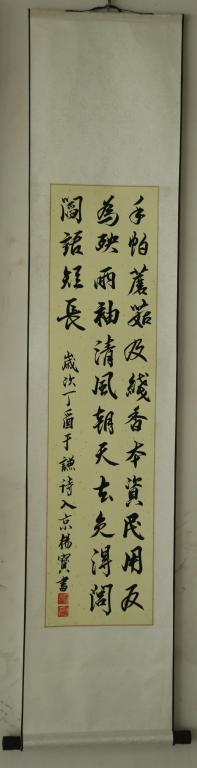 手帕蘑菇及綫香本資民用反
為殃兩袖清風朝天去免得閭
閻話短長
歲次丁酉于謙詩入京楊寶書